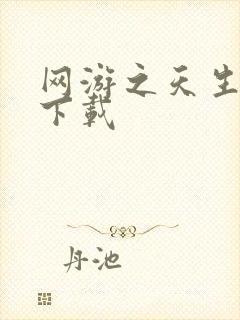 网游之天生
下载
丹池